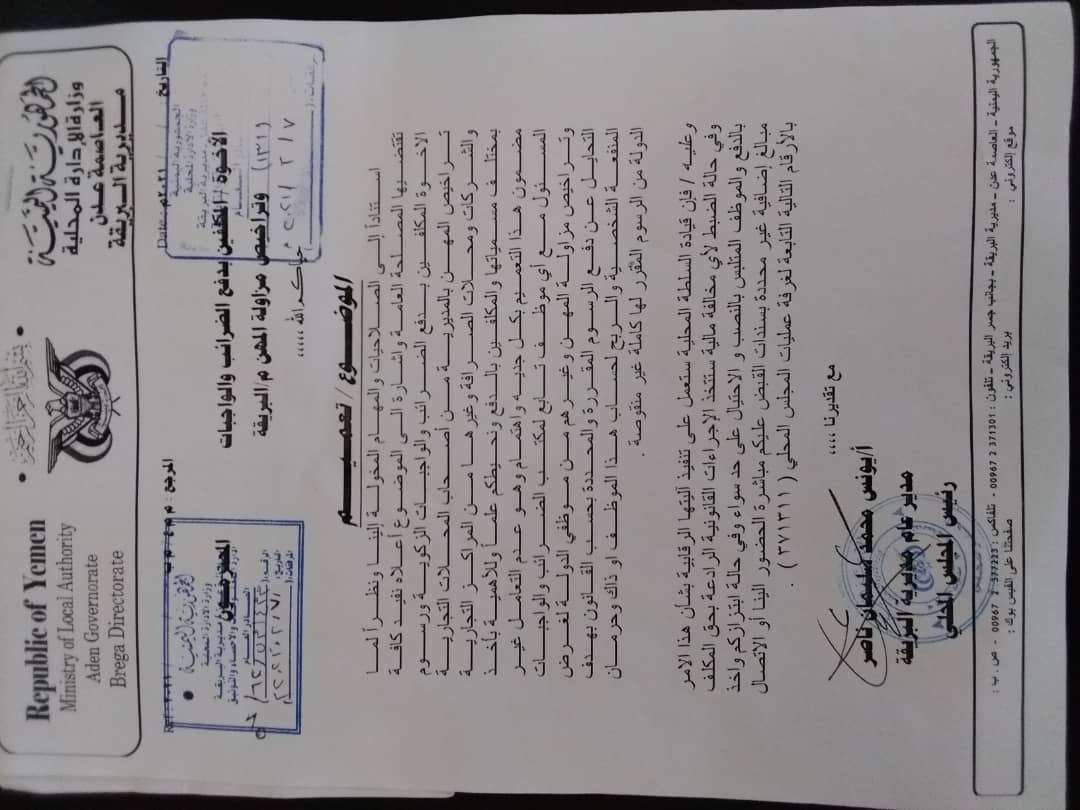 الجمهورية اليمنية
وزارة الإدارة المحلية
العاصمة عدن
مديرية البريقة
Republic of Yemen
Ministry of Local Authority
Aden Governorate
Brega Directorate
التاريخ : / / ٢٠٢١م
Date:
المرجع :
Ref :
الجمهورية اليمنية
وزارة الإدارة المحلية
مديرية البريقة
الأخوة / المكلفين بدفع الضرائب والواجبات
وتراخيص مزاولة المهن م/البريقة
المحترمون
حياكم الله ،،،،،
الموضوع / تعميم
استناداً إلى الصلاحيات والمهام المخولة إلينا ونظراً لما
تقتضيها المصلحة العامة وإشارة إلى الموضوع أعلاه نفيد كافة
الأخوة المكلفين بدفع الضرائب والواجبات الزكوية ورسوم
تراخيص المهن بالمديرية من أصحاب المحلات التجارية
والشركات ومحلات الصرافة وغيرها من المراكز التجارية
بمختلف مسمياتها والمكلفين بالدفع ونحيطكم علماً وللأهمية بأخذ
مضمون هذا التعميم بكل جديه واهتمام وهو عدم التعامل غير
المسئول مع أي موظف تابع لمكتب الضرائب والواجبات
وتراخيص مزاولة المهن وغيرهم من موظفي الدولة لغرض
التحايل عن دفع الرسوم المقررة والمحددة بحسب القانون بهدف
المنفعة الشخصية والربح لحساب هذا الموظف او ذاك وحرمان
الدولة من الرسوم المقرر لها كاملة غير منقوصة .
وعليه / فإن قيادة السلطة المحلية ستعمل على تنفيذ آليتها الرقابية بشأن هذا الامر
وفي حالة الضبط لأي مخالفة مالية ستتخذ الإجراءات القانونية الرادعة بحق المكلف
بالدفع والموظف المتلبس بالنصب و الاحتيال على حد سواء وفي حالة ابتزازكم واخذ
مبالغ إضافية غير محددة بسندات القبض عليكم مباشرة الحضور الينا أو الاتصال
بالأرقام التالية التابعة لغرفة عمليات المجلس المحلي ( ٣٧١٣١١ )
مع تقديرنا ،،،،
أ/يونس محمد سليمان ناصر
مدير عام مديرية البريقة
رئيس المجلس المحلي
الجمهورية اليمنية - العاصمة عدن - مديرية البريقة - بجانب جسر البريقة - تلفون : 371301 2 00967 - تلفاكس : 377223 2 00967 - ص . ب :
موقع إلكتروني : بريد إلكتروني : صفحتنا على الفيس بوك :